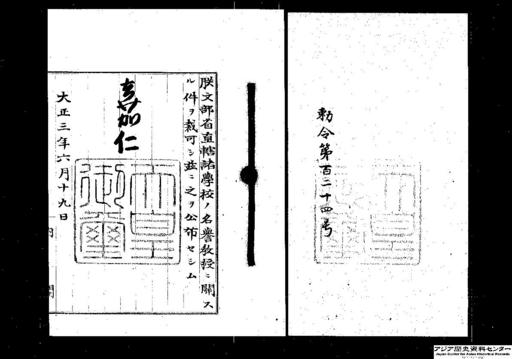 勅令第百二十四号
朕文部省直轄諸學校ノ名譽教授ニ關ス
ル件ヲ裁可シ茲ニ之ヲ公布セシム
嘉仁
天皇御璽
大正三年六月十九日
内閣
アジア歴史資料センター
Japan Center for Asian Historical Records